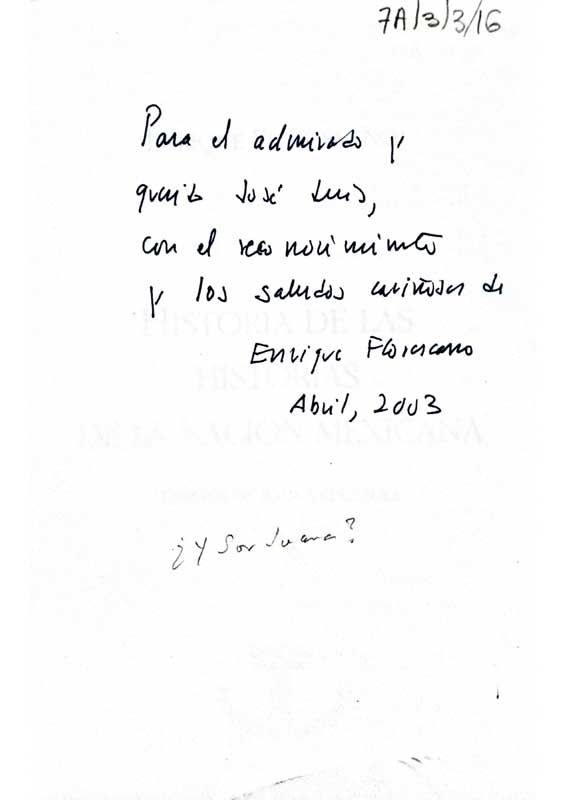 7A/3/3/16
Para el admirado y
querido José Luis,
con el reconocimiento
y los saludos cariñosos de
Enrique Florescano
Abril, 2003
HISTORIA DE LAS
HISTORIAS
DE LA NACIÓN MEXICANA
¿Y Sor Juana?